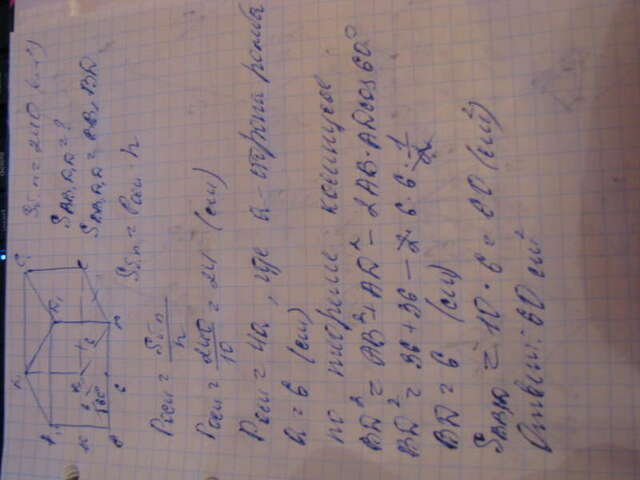 Sбп = 240 (см²)
S = ?
S = BB₁ · BD
Sбп = Pосн · h
Pосн = Sбп / h
Pосн = 240 / 10 = 24 (см)
Pосн = 4a, где a - сторона ромба
a = 6 (см)
по теореме косинусов
BD² = AB² + AD² - 2AB·AD cos 60°
BD² = 36 + 36 - 2·6·6·1/2
BD = 6 (см)
= 10 · 6 = 60 (см²)
Ответ: 60 см²
60°